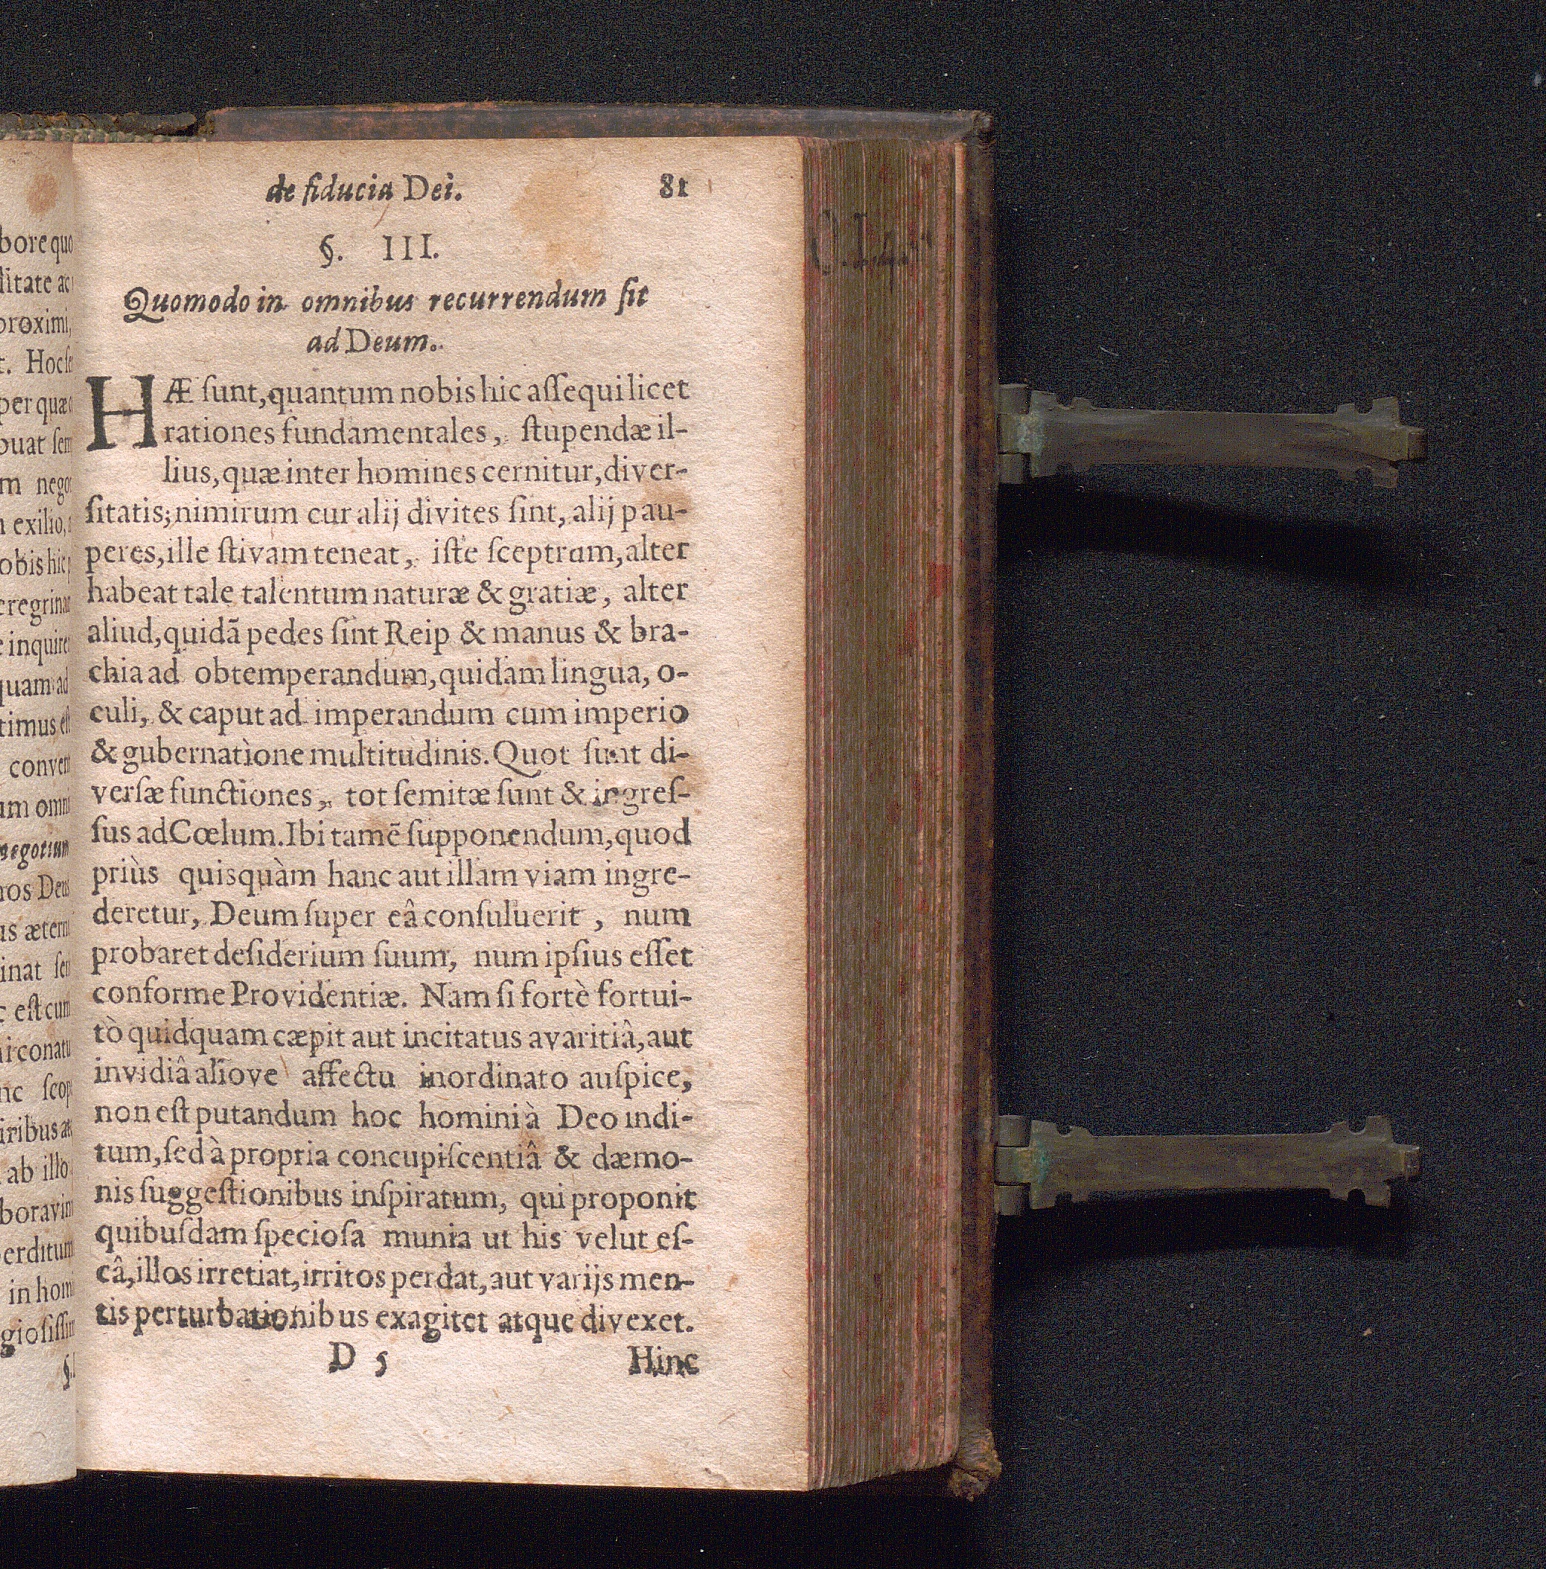 de fiducia Dei. 81
§. III.
Quomodo in omnibus recurrendum ſit
ad Deum.
HÆ ſunt, quantum nobis hic aſſequi licet
rationes fundamentales, ſtupendæ il-
lius, quæ inter homines cernitur, diver-
ſitatis; nimirum cur alij divites ſint, alij pau-
peres, ille ſtivam teneat, iſte ſceptrum, alter
habeat tale talentum naturæ & gratiæ, alter
aliud, quidã pedes ſint Reip & manus & bra-
chia ad obtemperandum, quidam lingua, o-
culi, & caput ad imperandum cum imperio
& gubernatione multitudinis. Quot ſunt di-
verſæ functiones, tot ſemitæ ſunt & ingreſ-
ſus ad Cœlum. Ibi tamẽ ſupponendum, quod
priùs quisquàm hanc aut illam viam ingre-
deretur, Deum ſuper eâ conſuluerit, num
probaret deſiderium ſuum, num ipſius eſſet
conforme Providentiæ. Nam ſi fortè fortui-
tò quidquam cæpit aut incitatus avaritiâ, aut
invidiâ aliove affectu inordinato auſpice,
non eſt putandum hoc homini à Deo indi-
tum, ſed à propria concupiſcentiâ & dæmo-
nis ſuggeſtionibus inſpiratum, qui proponit
quibuſdam ſpecioſa munia ut his velut eſ-
câ, illos irretiat, irritos perdat, aut varijs men-
tis perturbationibus exagitet atque divexet.
D 5 Hinc
bore quo
litate ac
proximi,
t. Hoc ſe
per quæ
buat ſem
m nego
n exilio,
obis hic
eregrina
e inquire
quam ad
timus eſt
conven
um omn
negotium
nos Deu
us ætern
inat ſen
c eſt cum
ni conatu
nc ſcop
iribus at
ab illo
boravim
perditum
in hom
gioſiſſim
§.